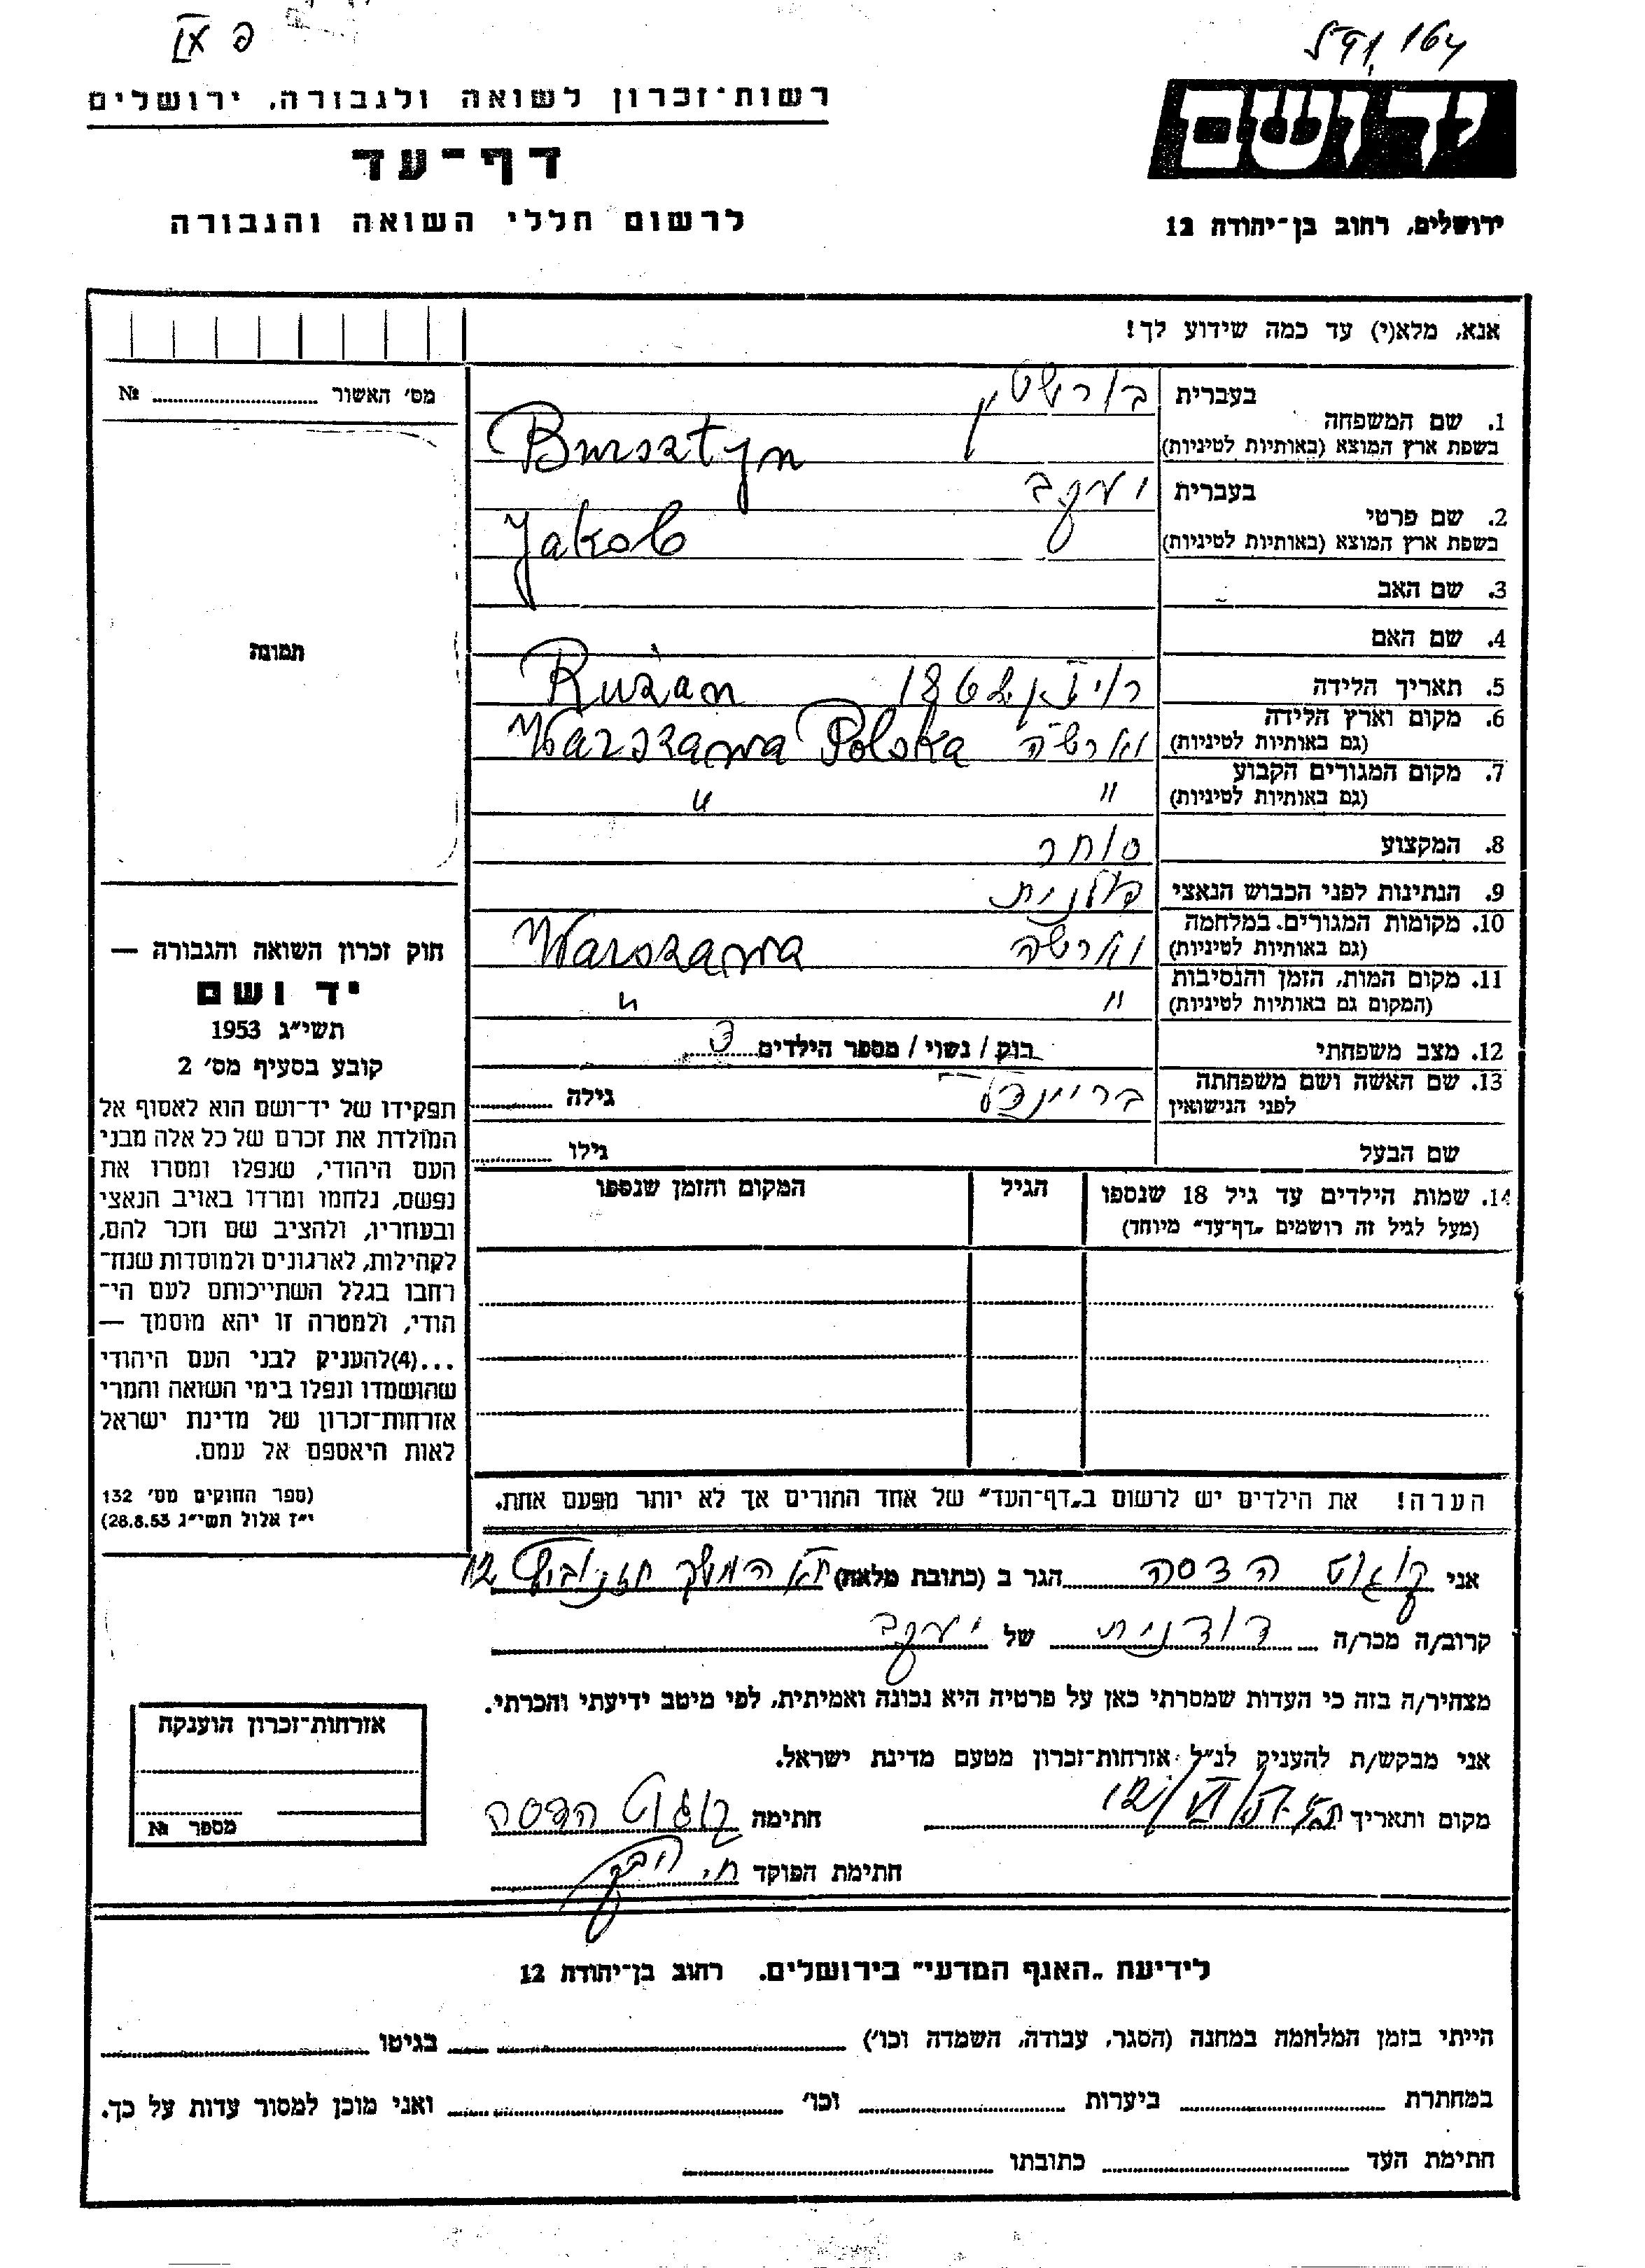 רשות־זכרון לשואה ולגבורה, ירושלים
דף־עד
לרשום חללי השואה והגבורה
יד ושם
ירושלים, רחוב בן־יהודה 12
אנא, מלא(י) עד כמה שידוע לך!
מס׳ האשור ........ №
תמונה
1. שם המשפחה
בעברית בורשטין
בשפת ארץ המוצא (באותיות לטיניות) Bursztyn
2. שם פרטי
בעברית יעקב
בשפת ארץ המוצא (באותיות לטיניות) Jakob
3. שם האב
4. שם האם
5. תאריך הלידה
Ružan
6. מקום וארץ הלידה
(גם באותיות לטיניות) וארשה Warszawa Polska
7. מקום המגורים הקבוע
(גם באותיות לטיניות) " "
8. המקצוע סוחר
9. הנתינות לפני הכבוש הנאצי פולנית
10. מקומות המגורים במלחמה
(גם באותיות לטיניות) וארשה Warszawa
11. מקום המות, הזמן והנסיבות
(המקום גם באותיות לטיניות) " "
12. מצב משפחתי רוק / נשוי / מספר הילדים 3
13. שם האשה ושם משפחתה
לפני הנישואין בריינדל גילה
שם הבעל גילו
14. שמות הילדים עד גיל 18 שנספו
(מעל לגיל זה רושמים „דף־עד״ מיוחד)
הגיל
המקום והזמן שנספו
הערה! את הילדים יש לרשום ב„דף־העד״ של אחד ההורים אך לא יותר מפעם אחת.
חוק זכרון השואה והגבורה —
יד ושם
תשי״ג 1953
קובע בסעיף מס׳ 2
תפקידו של יד־ושם הוא לאסוף אל
המולדת את זכרם של כל אלה מבני
העם היהודי, שנפלו ומסרו את
נפשם, נלחמו ומרדו באויב הנאצי
ובעוזריו, ולהציב שם וזכר להם,
לקהילות, לארגונים ולמוסדות שנח־
רחבו בגלל השתייכותם לעם הי־
הודי, ולמטרה זו יהא מוסמך —
...(4)להעניק לבני העם היהודי
שהושמדו ונפלו בימי השואה והמרי
אזרחות־זכרון של מדינת ישראל
לאות היאספם אל עמם.
(ספר החוקים מס׳ 132
י״ז אלול תשי״ג 28.8.53)
אני הדסה הגר ב (כתובת מלאה) 12
קרוב/ה מכר/ה דודנית של יעקב
מצהיר/ה בזה כי העדות שמסרתי כאן על פרטיה היא נכונה ואמיתית, לפי מיטב ידיעתי והכרתי.
אני מבקש/ת להעניק לנ״ל אזרחות־זכרון מטעם מדינת ישראל.
מקום ותאריך חתימה הדסה
חתימת הפוקד
אזרחות־זכרון הוענקה
מספר №
לידיעת „האגף המדעי״ בירושלים. רחוב בן־יהודה 12
הייתי בזמן המלחמה במחנה (הסגר, עבודה, השמדה וכו׳) בגיטו
במחתרת ביערות וכו׳ ואני מוכן למסור עדות על כך.
חתימת העד כתובתו